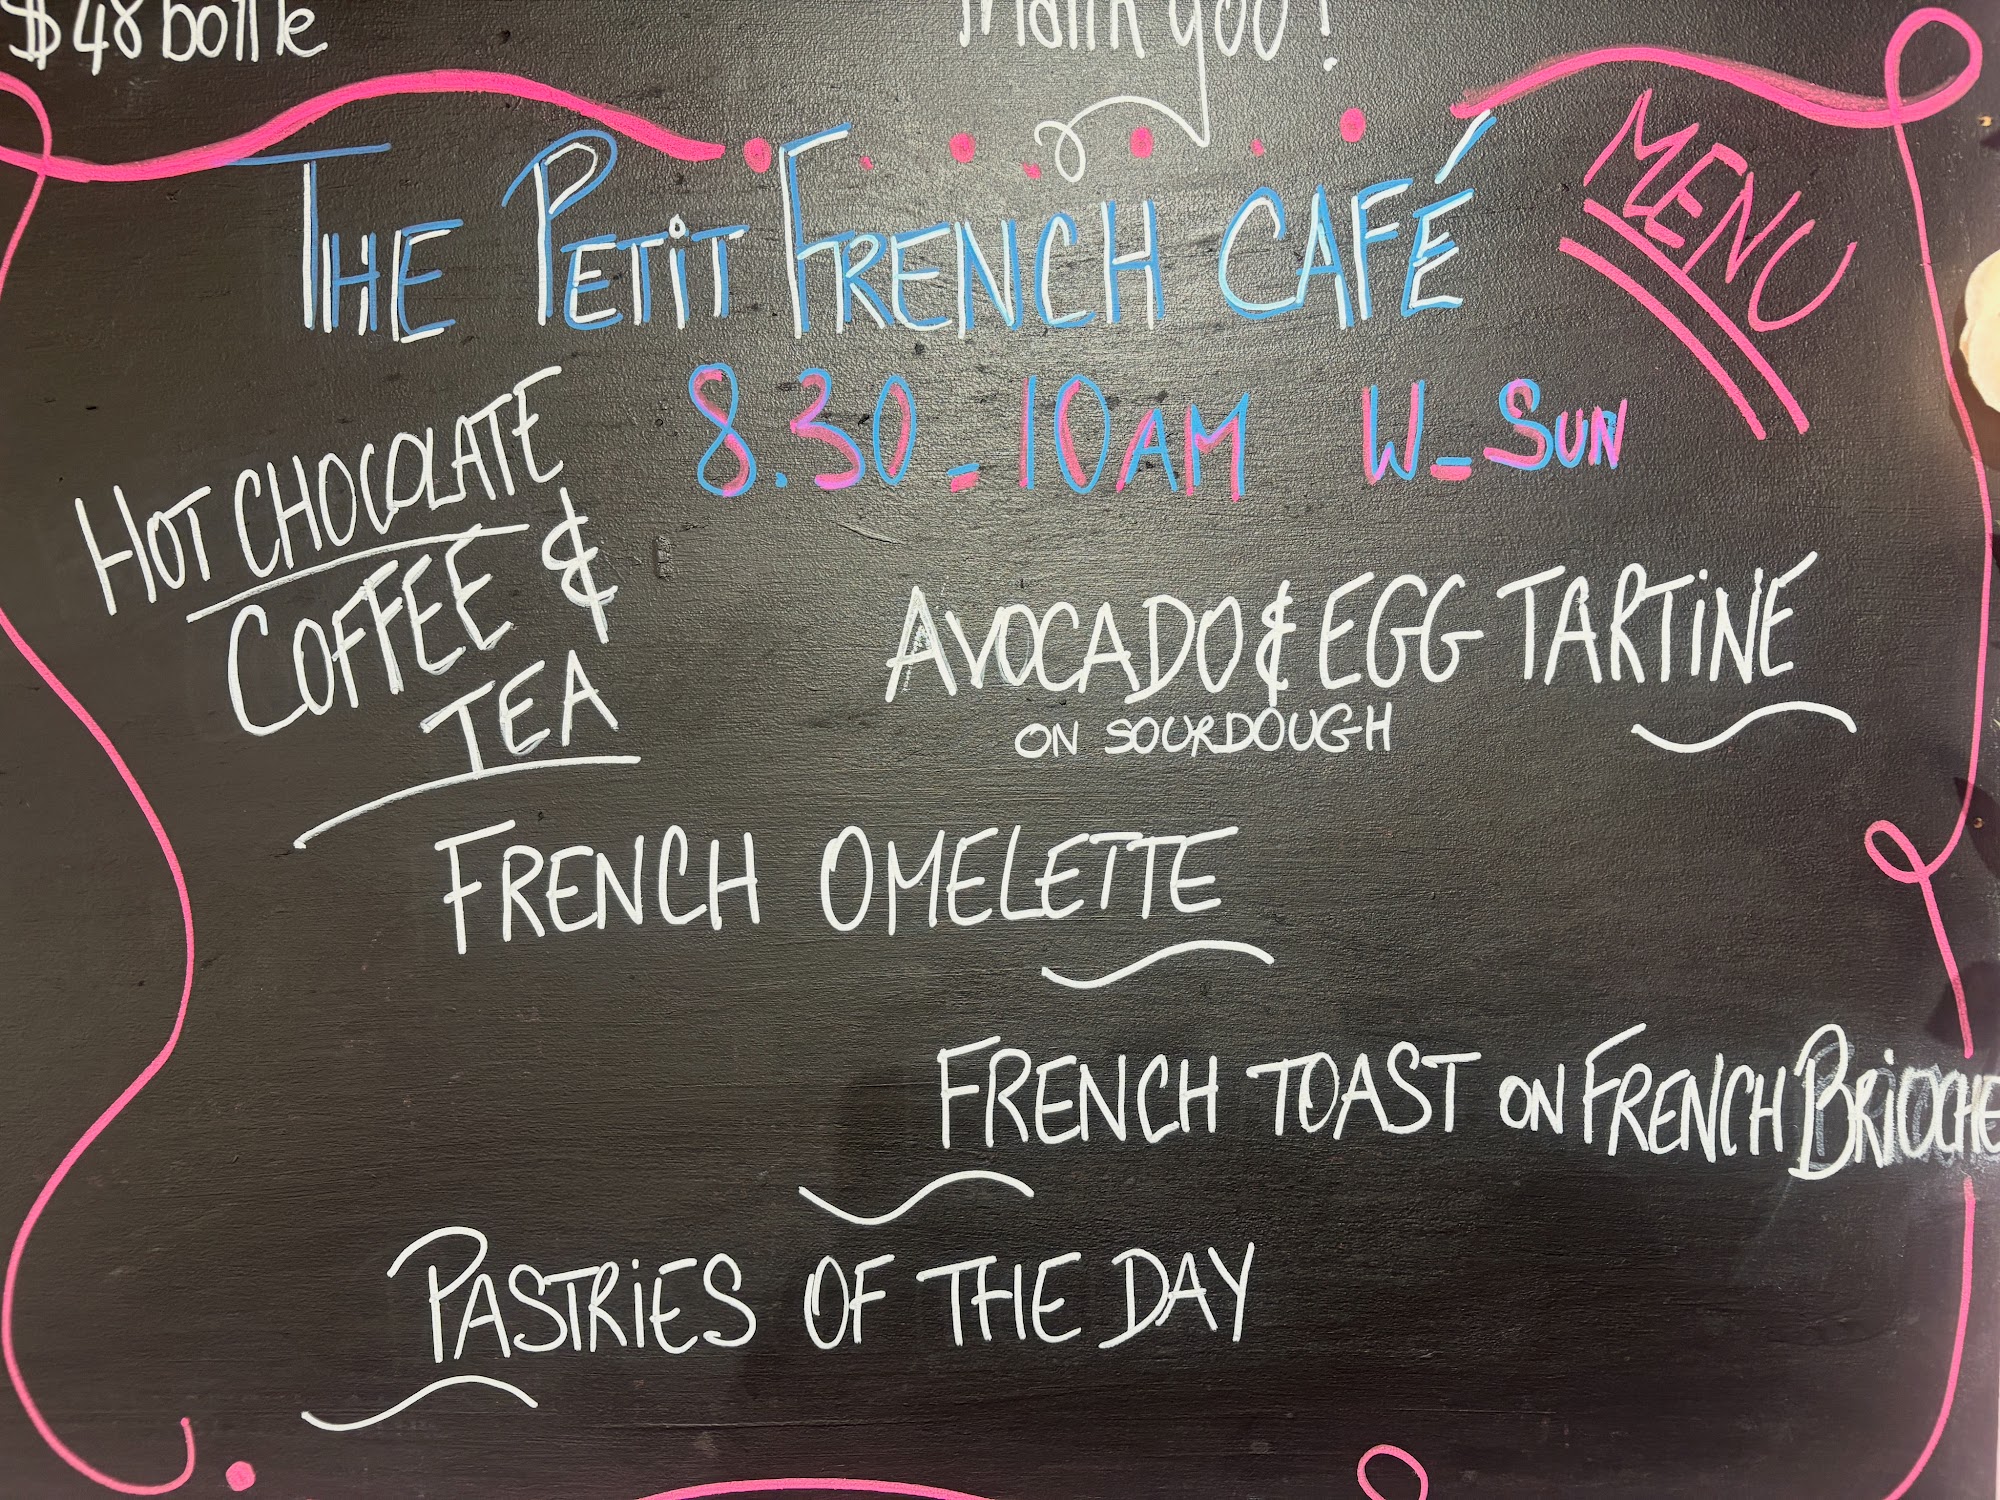 $48 bottle
Thank you!
THE PETIT FRENCH CAFÉ
MENU
8.30 - 10AM W - SUN
HOT CHOCOLATE
COFFEE &
TEA
AVOCADO & EGG TARTINE
ON SOURDOUGH
FRENCH OMELETTE
FRENCH TOAST ON FRENCH BRIOCHE
PASTRIES OF THE DAY